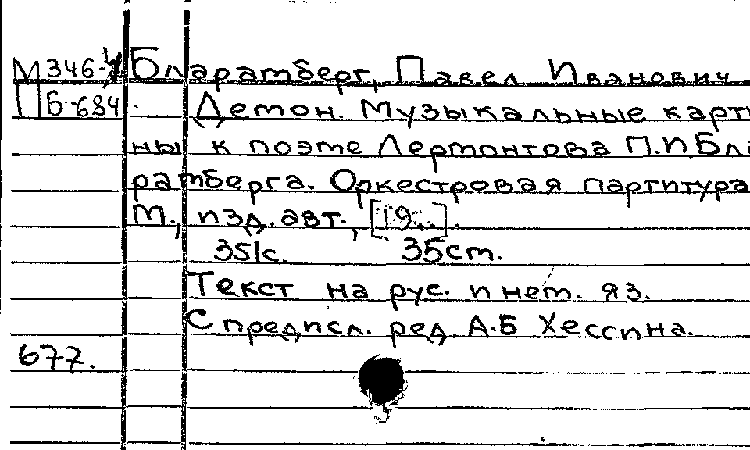 М 346-4 Бларамберг, Павел Иванович
П Б-684. Демон. Музыкальные карти
ны к поэме Лермонтова П.И Бла
рамберга. Оркестровая партитура
М., изд. авт., [19..].
351с. 35cm.
Текст на рус. и нем. яз.
С предисл. ред. А.Б Хессина.
677.